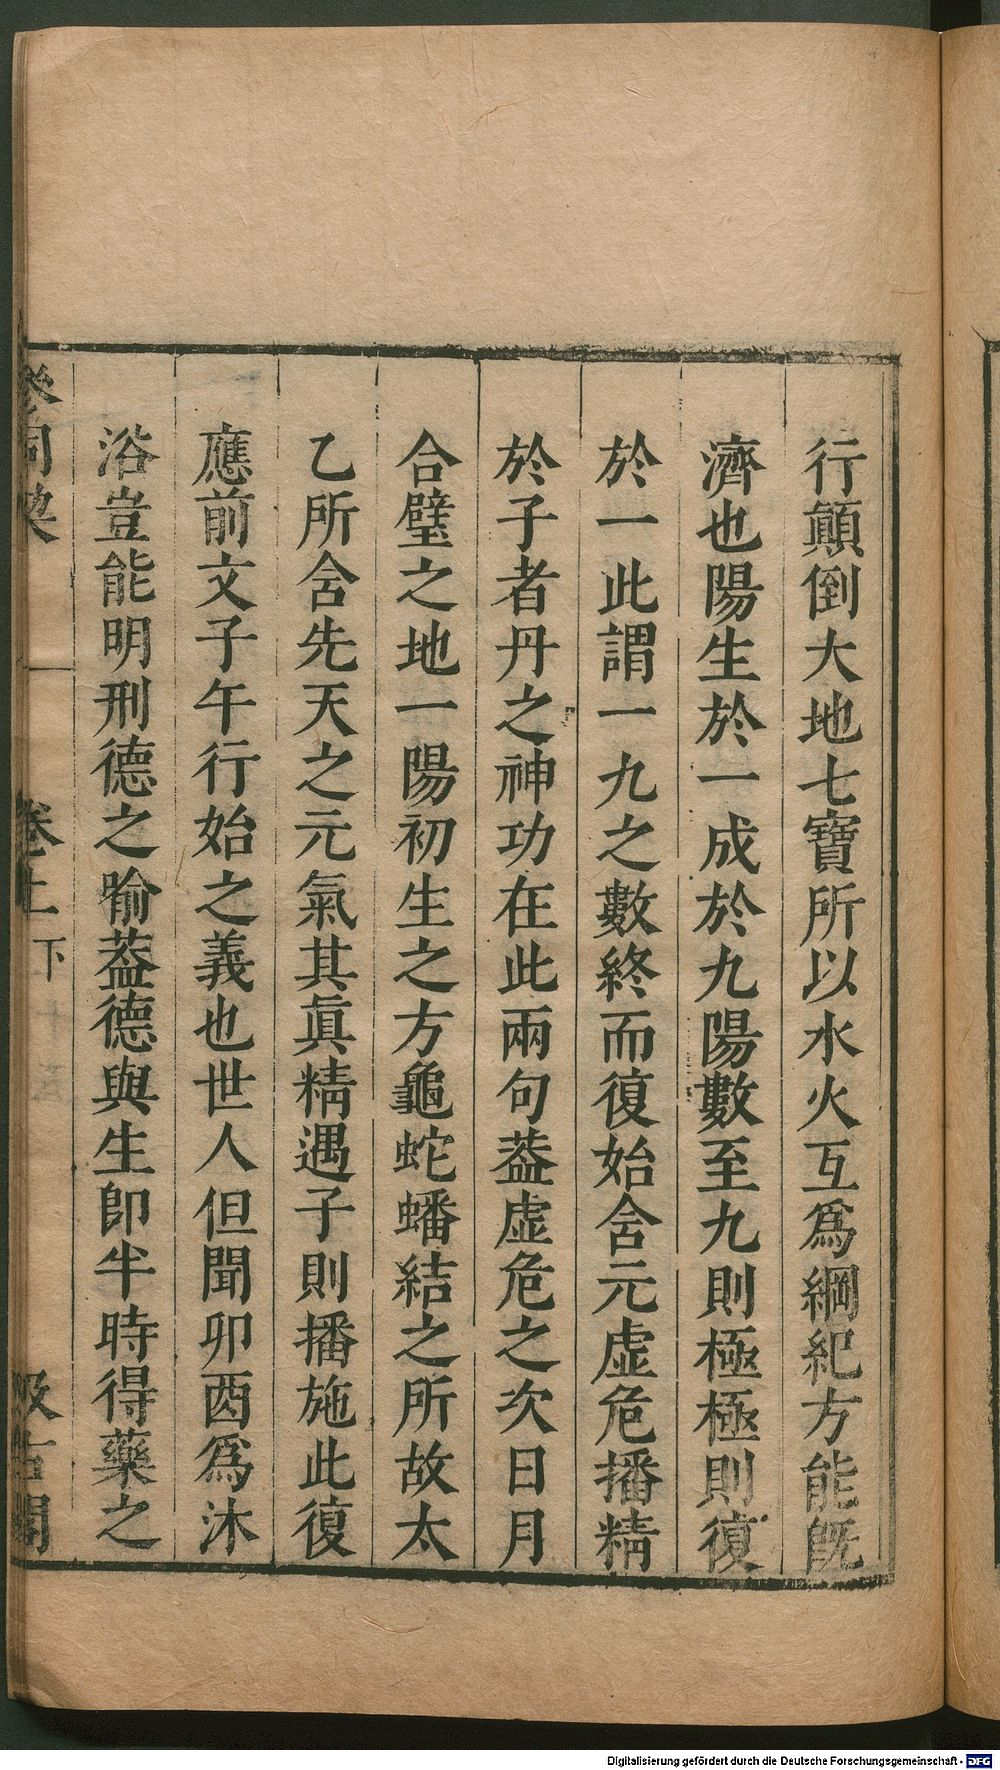 行顛倒大地七寶所以水火互爲綱紀方能旣
濟也陽生於一成於九陽數至九則極極則復
於一此謂一九之數終而復始含元虛危播精
於子者丹之神功在此兩句葢虛危之次日月
合璧之地一陽初生之方龜蛇蟠結之所故太
乙所含先天之元氣其眞精遇子則播施此復
應前文子午行始之義也世人但聞卯酉爲沐
浴豈能明刑德之喻葢德與生卽半時得藥之
參同契 卷上 下 汲古閣
Digitalisierung gefördert durch die Deutsche Forschungsgemeinschaft - DFG